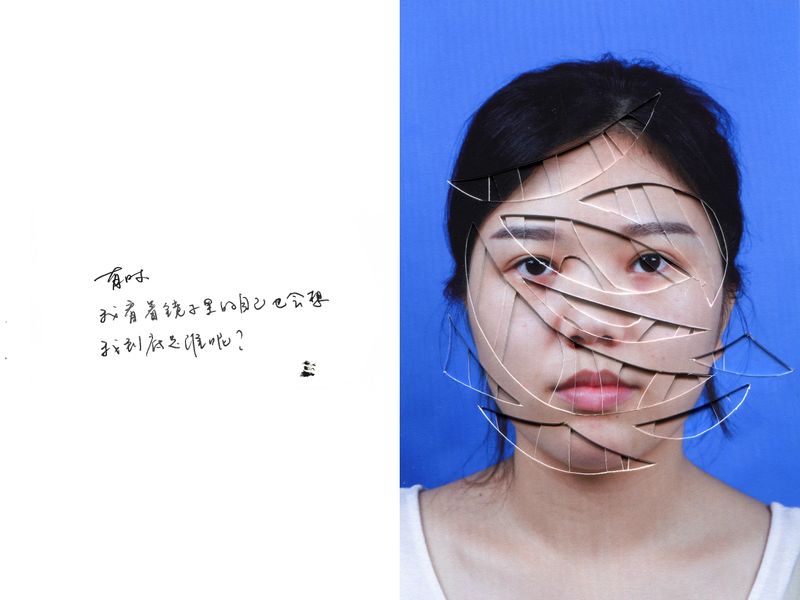 有时
我看着镜子里的自己也会想
我到底是谁呢？